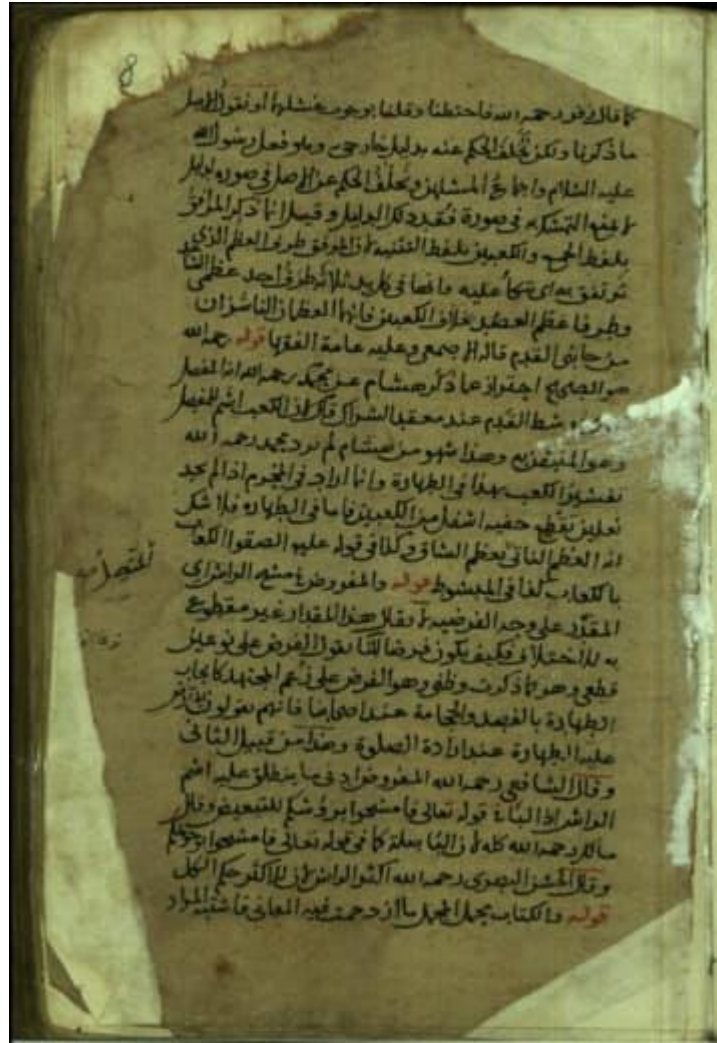 8
كما قال زفر رحمه الله فاحتطنا وقلنا بوجوب غسلها او نقول الاصل
ما ذكرنا ولكن تخلف الحكم عنه بدليل خارجي وهو فعل رسول الله
عليه السلام واجماع المسلمين وتخلف الحكم عن الاصل في صورة بدليل
لا يمنع التمسك به في صورة فقد ذلك الدليل وقيل انما ذكر المرافق
بلفظ الجمع والكعبين بلفظ التثنية لان المرفق طرف العظم الذي
يرتفق به اى يتكأ عليه وانها في كل يد ثلاثة طرف احد عظمي الساعد
وطرفا عظم العضد بخلاف الكعبين فانهما العظمان الناشزان
من جانبي القدم قاله الاصمعي وعليه عامة الفقها قوله رحمه الله
هو الصحيح احتراز عما ذكر هشام عن محمد رحمه الله انه المفصل
وسط القدم عند معقد الشراك قال لان الكعب اسم للمفصل
وهذا سهو من هشام لم يرد محمد رحمه الله
تفسير الكعب بهذا في الطهارة وانما اراد في المحرم اذا لم يجد
نعلين يقطع خفيه اسفل من الكعبين فاما في الطهارة فلا شك
انه العظم الناتي بعظم الساق وكذا في قوله عليه الصقوا الكعاب
بالكعاب كذا في المبسوط قوله والمفروض مسح الراس اي
المقدر على وجه الفرضية لا يقال هذا المقدار غير مقطوع
به للاختلاف فكيف يكون فرضا لانا نقول الفرض على نوعين
قطعي وهو ما ذكرت وظني وهو الفرض على زعم المجتهد كايجاب
الطهارة بالفصد والحجامة عند اصحابنا فانهم يقولون يفترض
عليه الطهارة عند ارادة الصلوة وهذا من قبيل الثاني
وقال الشافعي رحمه الله المفروض ادنى ما ينطلق عليه اسم
الراس اذ الباء في قوله تعالى فامسحوا برؤسكم للتبعيض وقال
مالك رحمه الله كله لان البا صلة كما في قوله تعالى فامسحوا بوجوهكم
وقال الحسن البصري رحمه الله اكثر الراس لان للاكثر حكم الكل
قوله والكتاب مجمل المجمل ما ازدحمت فيه المعاني فاشتبه المراد